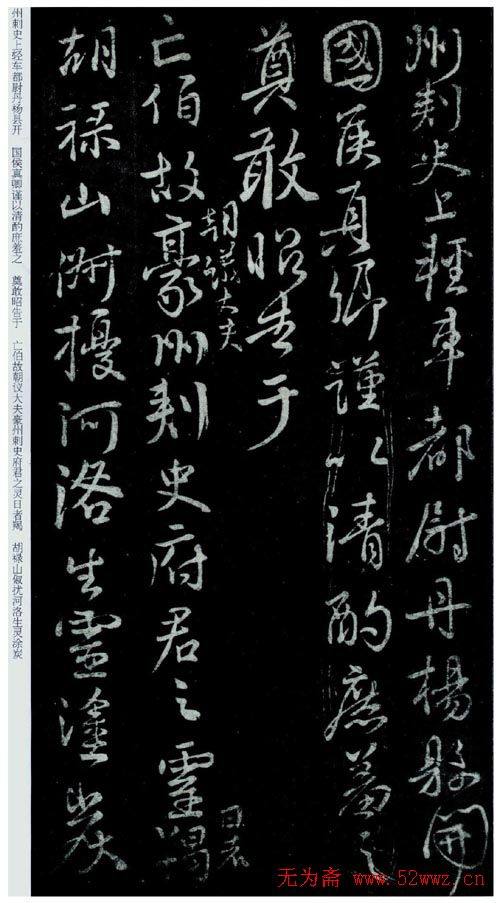 州刺史上輕車都尉丹楊縣開
國侯真卿謹以清酌庶羞之
奠敢昭告于
朝議大夫
亡伯故豪州刺史府君之靈羯
日者
胡祿山俶擾河洛生靈塗炭
州刺史上轻车都尉丹杨县开 国侯真卿谨以清酌庶羞之 奠敢昭告于 亡伯故朝议大夫豪州刺史府君之灵日者羯 胡禄山俶扰河洛生灵涂炭
无为斋 www.52wwz.cn